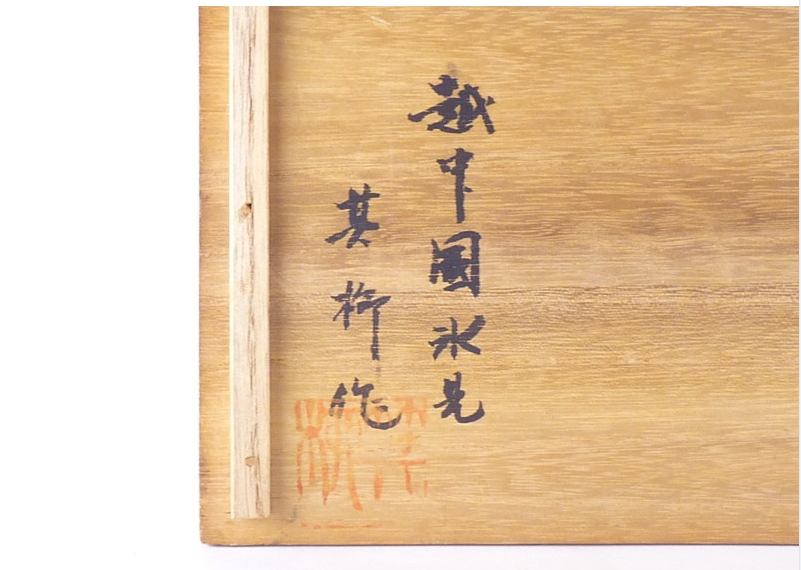 越中國氷見
其柳作